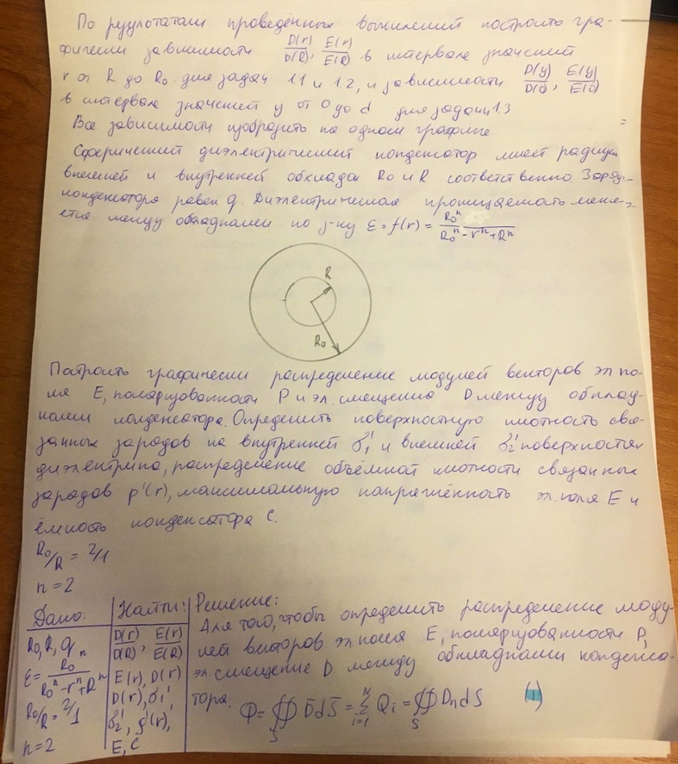 По результатам проведенных вычислений построить гра-
фически зависимости D(r)/D(R), E(r)/E(R) в интервале значений
r от R до R₀ для задач 1.1 и 1.2, и зависимости D(y)/D(0), E(y)/E(0)
в интервале значений y от 0 до d для задачи 1.3
Все зависимости изобразить на одном графике
Сферический диэлектрический конденсатор имеет радиусы
внешней и внутренней обкладок R₀ и R соответственно. Заряд
конденсатора равен q. Диэлектрическая проницаемость меня-
ется между обкладками по з-ну ε = f(r) = R₀ⁿ/(R₀ⁿ - rⁿ + Rⁿ)
R
R₀
Построить графически распределение модулей векторов эл по-
ля E, поляризованности P и эл. смещения D между обклад-
ками конденсатора. Определить поверхностную плотность свя-
занных зарядов на внутренней σ₁' и внешней σ₂' поверхностях
диэлектрика, распределение объёмной плотности связанных
зарядов ρ'(r), максимальную напряжённость эл. поля E и
ёмкость конденсатора C.
R₀/R = 2/1
n = 2
Дано:
R₀, R, q, n
ε = R₀/(R₀ⁿ - rⁿ + Rⁿ)
R₀/R = 2/1
n = 2
Найти:
D(r)/D(R), E(r)/E(R)
E(r), D(r)
D(r), σ₁',
σ₂', ρ'(r),
E, C
Решение:
Для того, чтобы определить распределение моду-
лей векторов эл поля E, поляризованности P,
эл. смещение D между обкладками конденса-
тора. Φ = ∯ D̄ dS̄ = Σ Qᵢ = ∯ Dₙ dS (1)
S i=1 N S